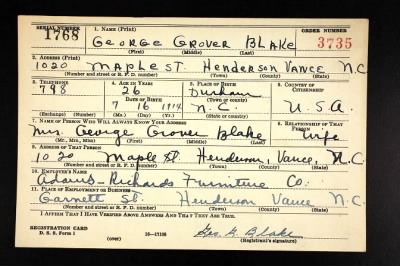 SERIAL NUMBER 1. NAME (Print) ORDER NUMBER
1768 GEORGE GROVER BLAKE 3735
(First) (Middle) (Last)
2. ADDRESS (Print)
1020 MAPLE ST. Henderson VANCE N.C.
(Number and street or R. F. D. number) (Town) (County) (State)
3. TELEPHONE 4. AGE IN YEARS 5. PLACE OF BIRTH 6. COUNTRY OF CITIZENSHIP
798 26 Durham
(Town or county)
DATE OF BIRTH
7 16 1914 N.C. U.S.A.
(Exchange) (Number) (Mo.) (Day) (Yr.) (State or country)
7. NAME OF PERSON WHO WILL ALWAYS KNOW YOUR ADDRESS 8. RELATIONSHIP OF THAT PERSON
Mrs. George Grover Blake Wife
(Mr., Mrs., Miss) (First) (Middle) (Last)
9. ADDRESS OF THAT PERSON
1020 Maple St. Henderson, Vance, N.C.
(Number and street or R. F. D. number) (Town) (County) (State)
10. EMPLOYER'S NAME
Adams-Richards Furniture Co.
11. PLACE OF EMPLOYMENT OR BUSINESS
Garnett St. Henderson Vance N.C.
(Number and street or R. F. D. number) (Town) (County) (State)
I AFFIRM THAT I HAVE VERIFIED ABOVE ANSWERS AND THAT THEY ARE TRUE.
REGISTRATION CARD
D. S. S. Form 1 (over) 16—17105 Geo. G. Blake
(Registrant's signature)